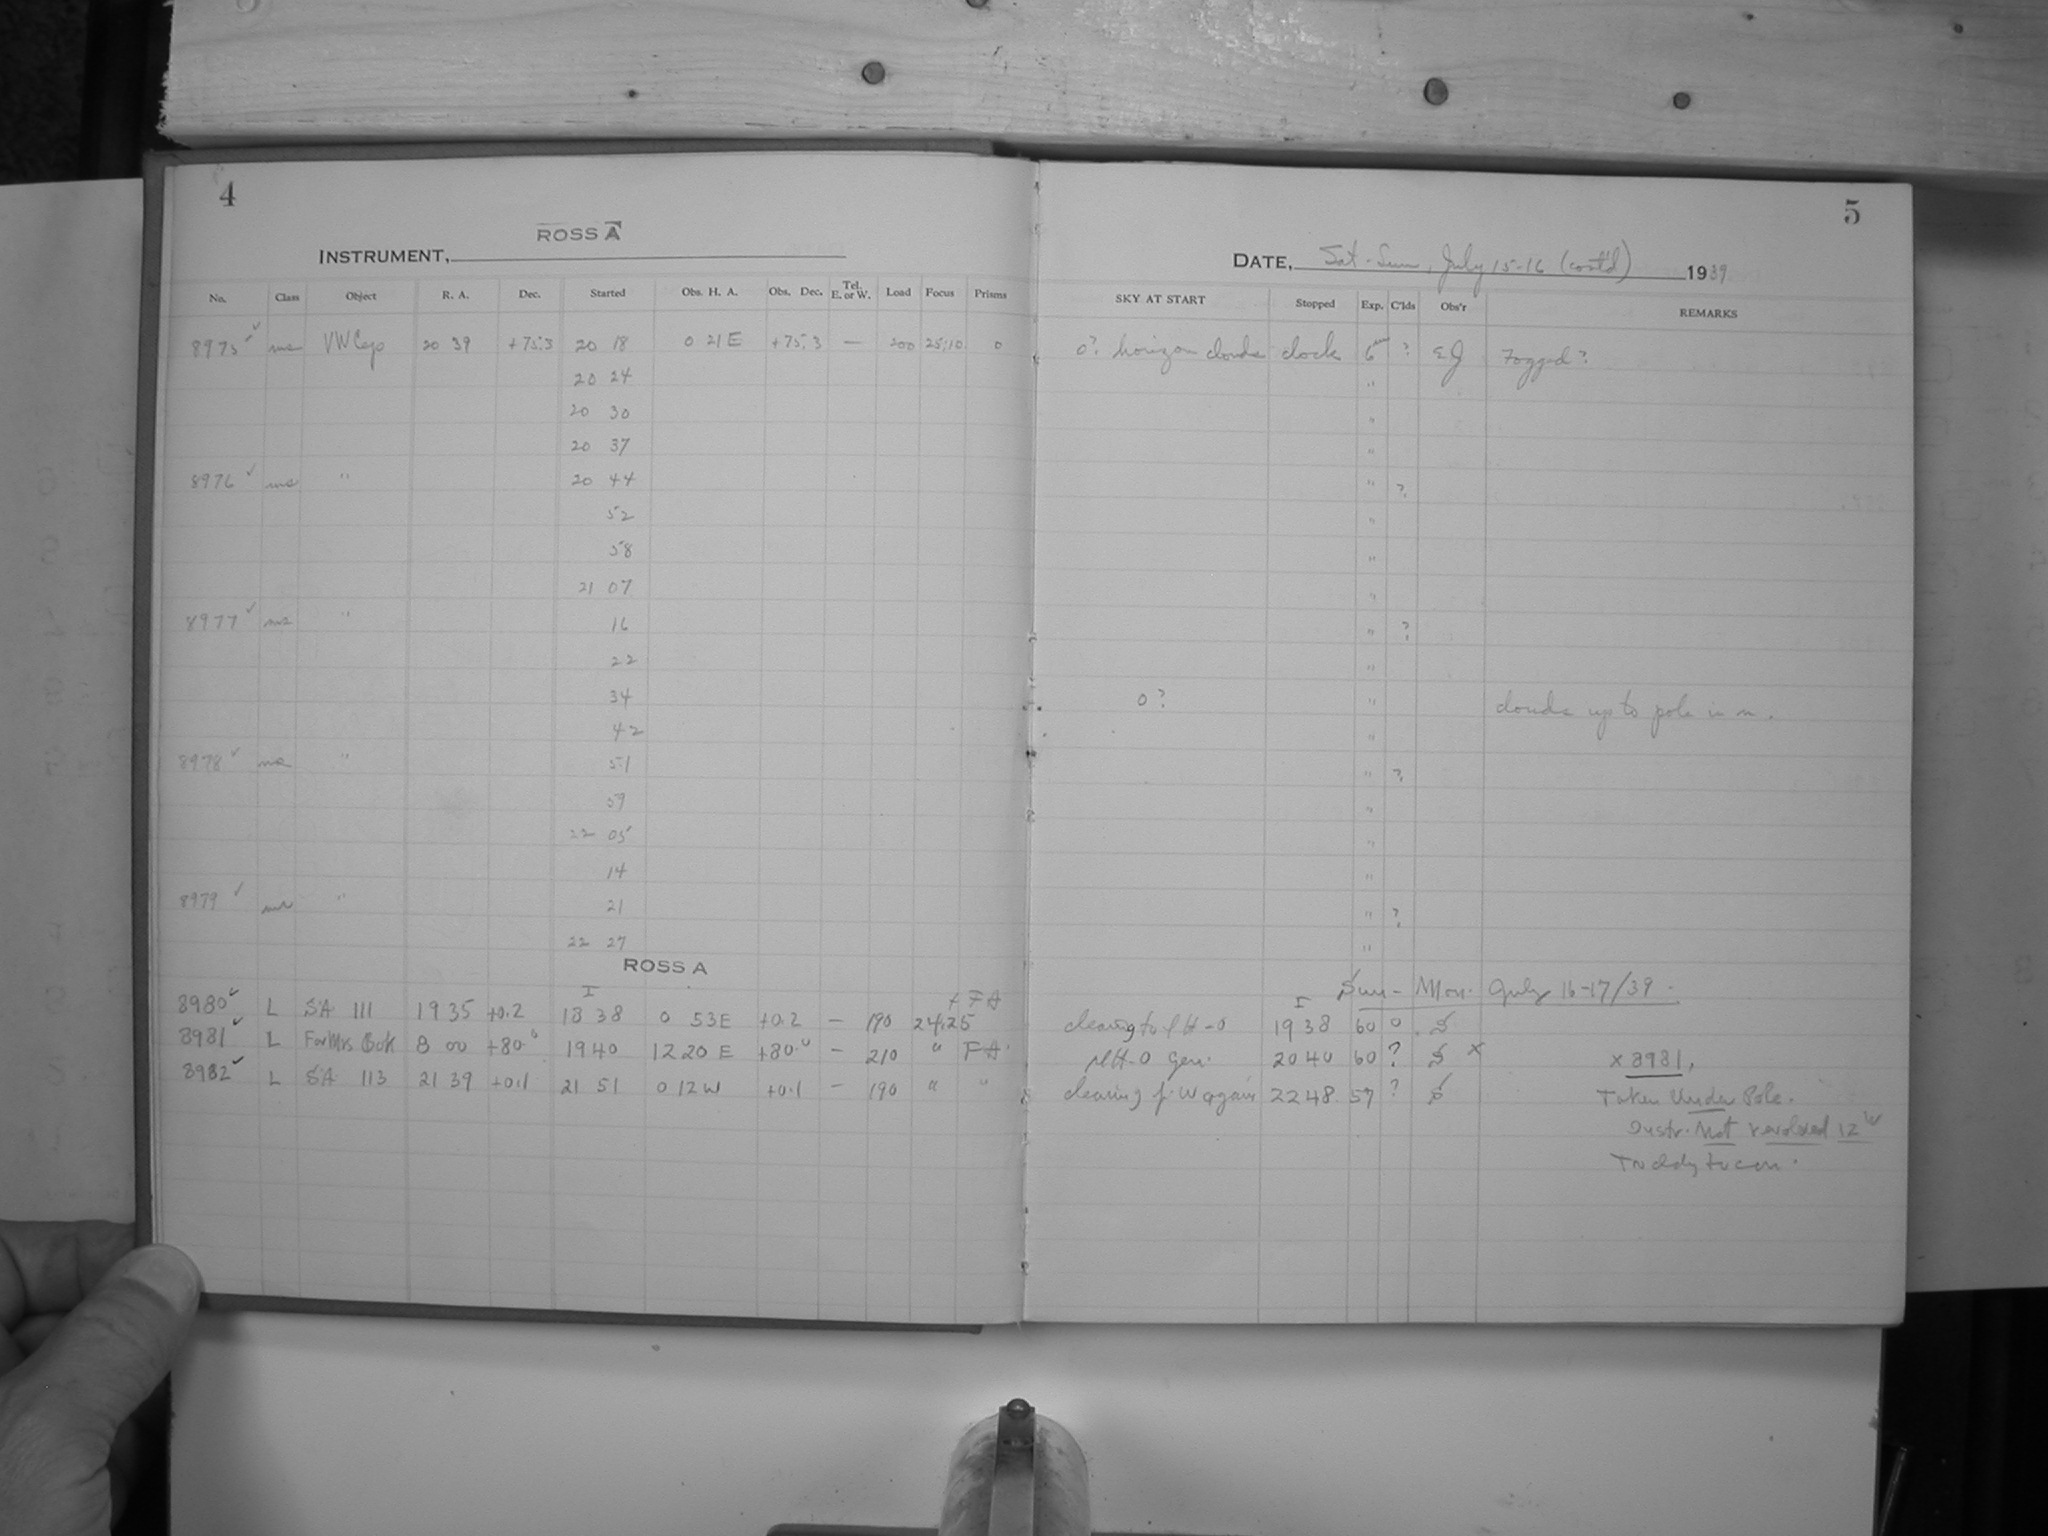 4
INSTRUMENT, ROSS A
No. Class Object R. A. Dec. Started Obs. H. A. Obs. Dec. Tel. E. or W. Load Focus Prisms
8975 ✓ ms VW Cep 20 39 +75.3 20 18 0 21 E +75.3 — 200 25:10 0
20 24
20 30
20 37
8976 ✓ ms " 20 44
52
58
21 07
8977 ✓ ms " 16
22
34
42
8978 ✓ ms " 51
57
22 05
14
8979 ✓ ms " 21
22 27
ROSS A
8980 ✓ L SA 111 19 35 +0.2 18 38 0 53 E +0.2 — 190 24.25
8981 ✓ L For Mrs Bok 8 00 +80.° 19 40 12 20 E +80.° — 210 "
8982 ✓ L SA 113 21 39 +0.1 21 51 0 12 W +0.1 — 190 " "
5
DATE, Sat - Sun, July 15-16 (cont'd) 1939
SKY AT START Stopped Exp. C'lds Obs'r REMARKS
0? horizon clouds clock 6m ? EJ Fogged?
"
"
"
" ?
"
"
"
" ?
"
0? " clouds up to pole in n.
"
" ?
"
"
"
" ?
"
Sun - Mon. July 16-17/39.
clearing to 0 19 38 60 0 S
0 Gen. 20 40 60 ? S x x 8981,
clearing f. W again 22 48 57 ? S Taken Under Pole.
Instr. Not revolved 12